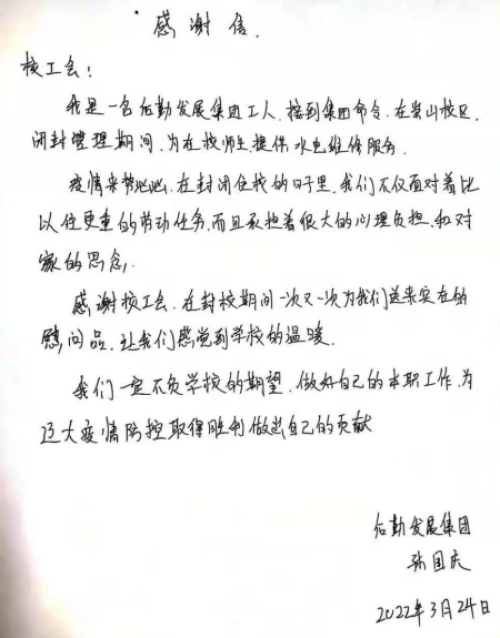 感谢信.
校工会:
我是一名后勤发展集团工人,接到集团命令.在崇山校区,
闭封管理期间,为在校师生提供水电维修服务.
疫情来势汹汹.在封闭住校的日子里.我们不仅面对着比
以往更重的劳动任务,而且承担着很大的心理负担.和对
家的思念,
感谢校工会.在封校期间一次又一次为我们送来实在的
慰问品.让我们感觉到学校的温暖.
我们一定不负学校的期望.做好自己的本职工作.为
辽大疫情防控取得胜利做出自己的贡献
后勤发展集团
张国庆
2022年3月24日